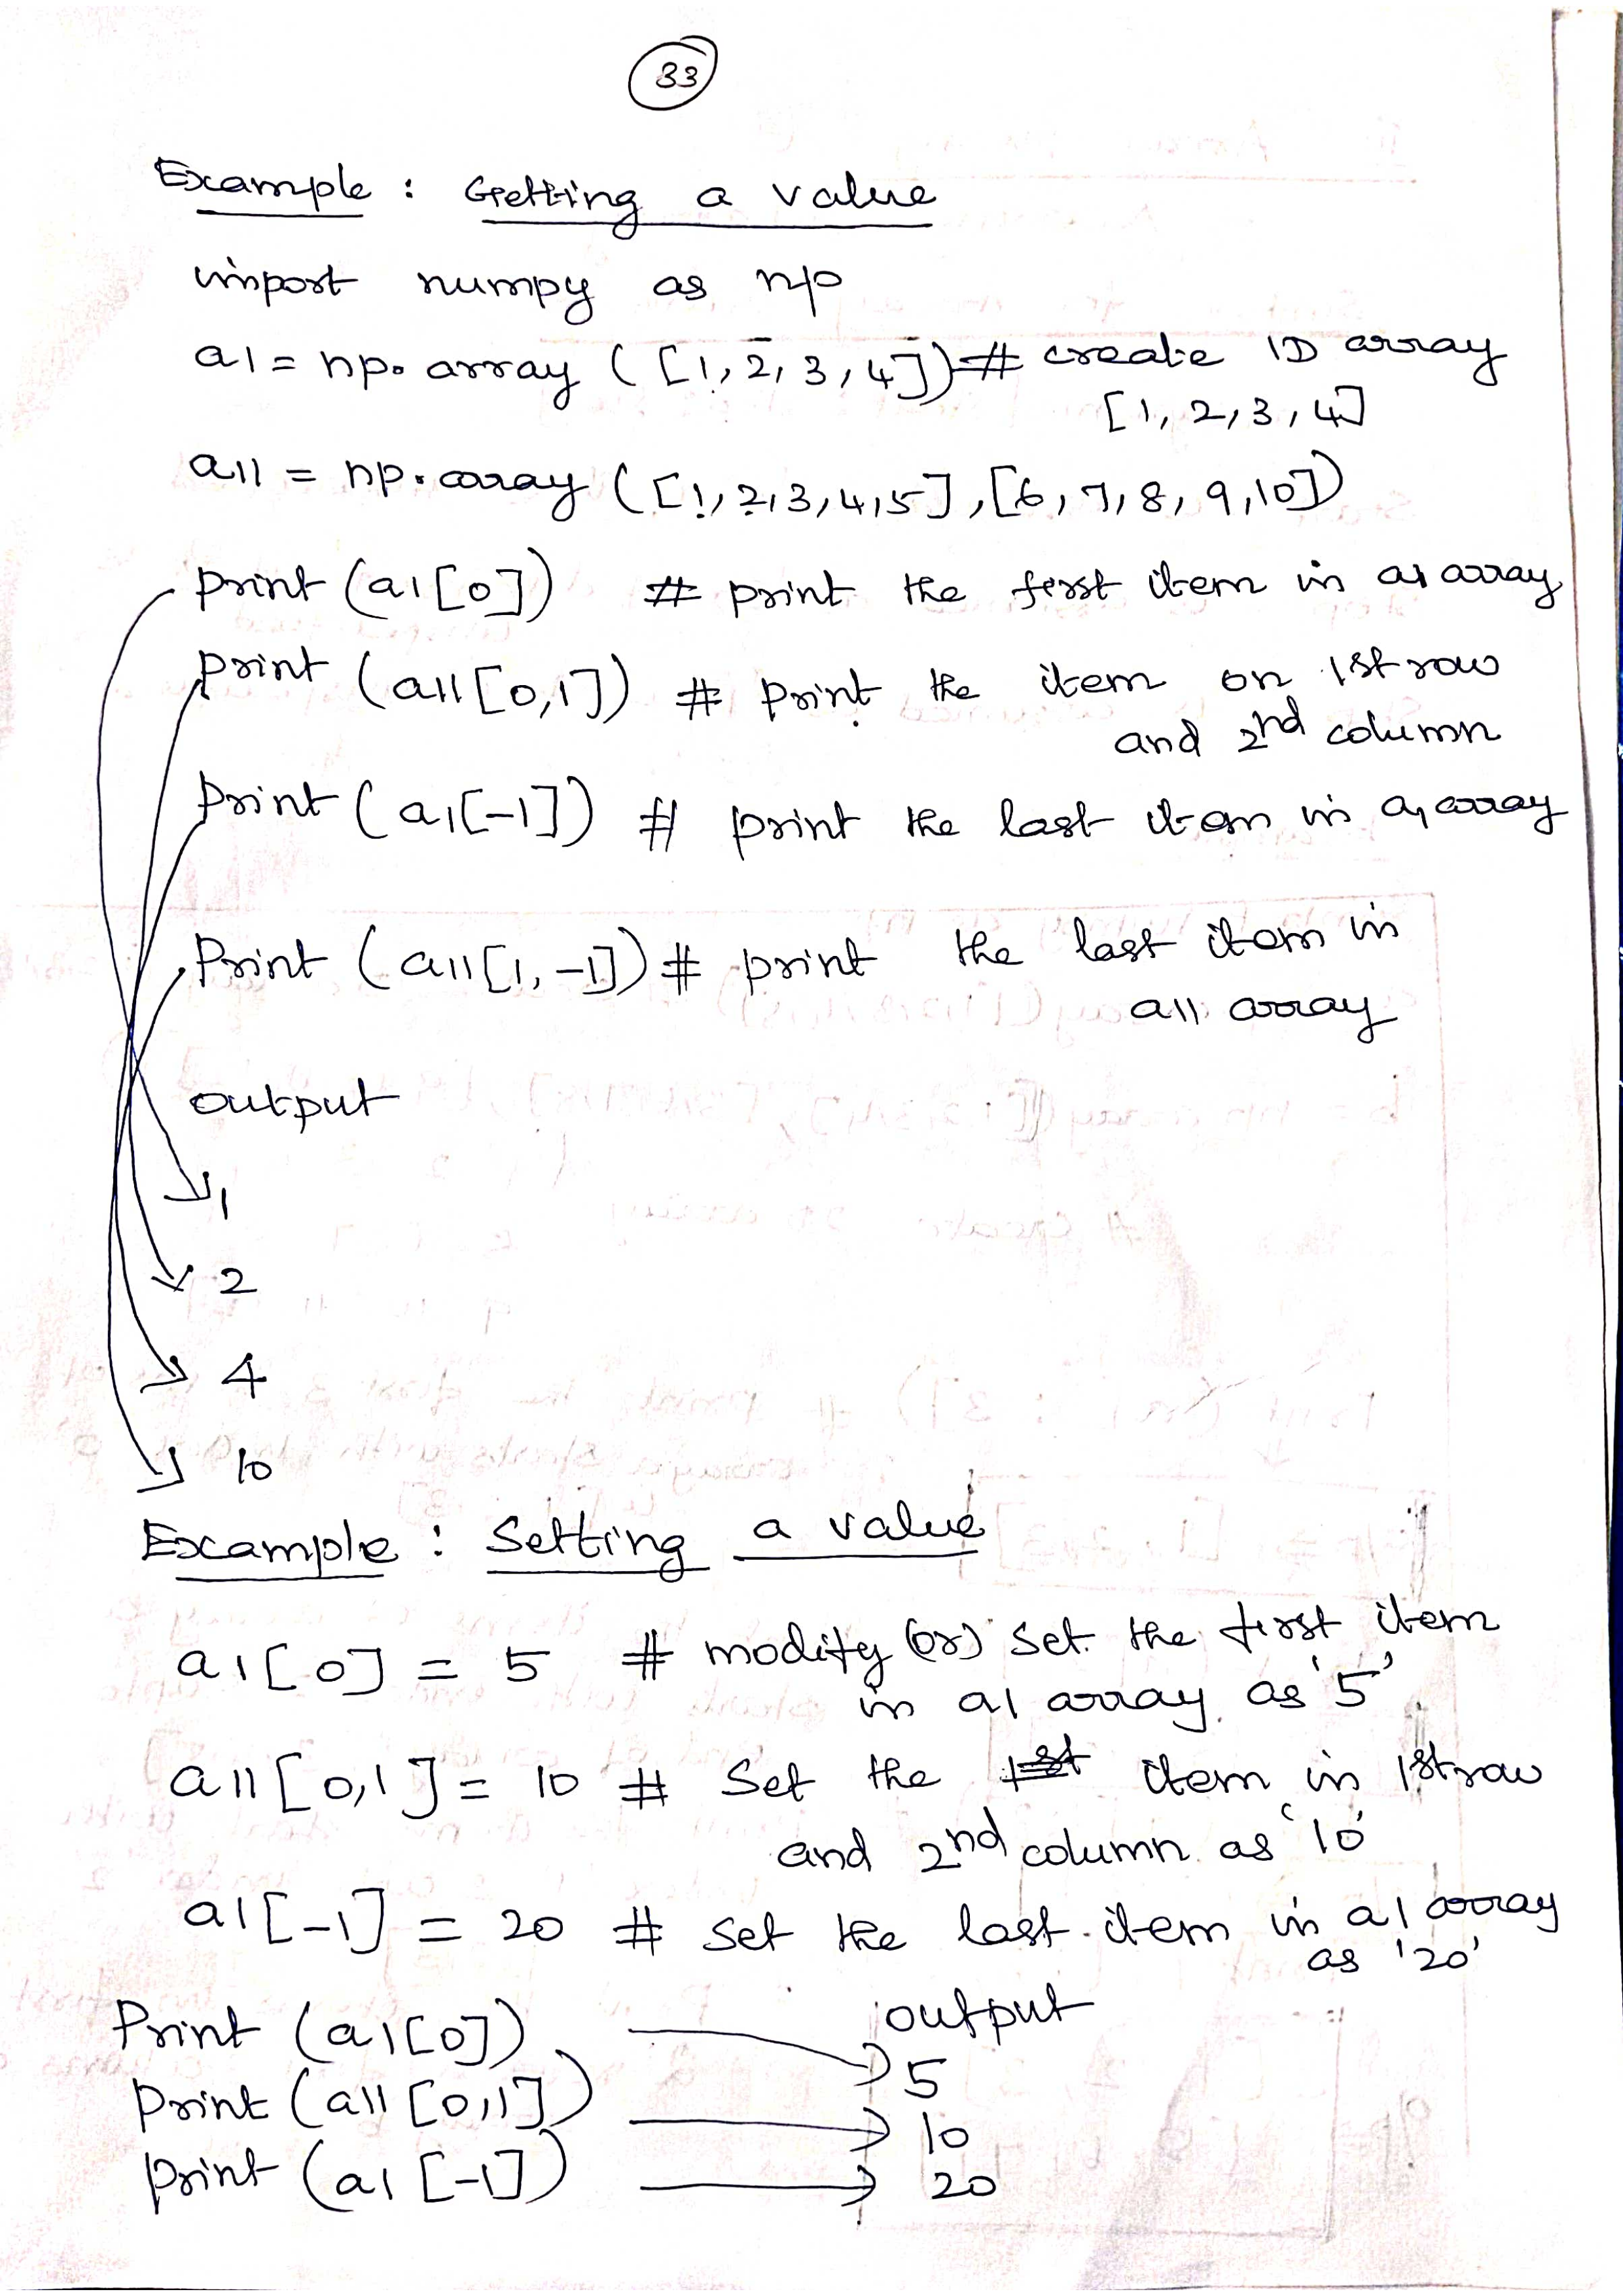 33
Example : Getting a value
import numpy as np
a1 = np.array ([1, 2, 3, 4]) # create 1D array
[1, 2, 3, 4]
a11 = np.array ([1, 2, 3, 4, 5], [6, 7, 8, 9, 10])
print (a1[0]) # print the first item in a1 array
print (a11[0,1]) # print the item on 1st row
and 2nd column
print (a1[-1]) # print the last item in a1 array
Print (a11[1, -1]) # print the last item in
a11 array
output
1
2
4
10
Example : Setting a value
a1[0] = 5 # modify (or) set the first item
in a1 array as '5'
a11[0,1] = 10 # Set the item in 1st row
and 2nd column as '10'
a1[-1] = 20 # set the last item in a1 array
as '20'
output
Print (a1[0]) 5
Print (a11[0,1]) 10
print (a1[-1]) 20